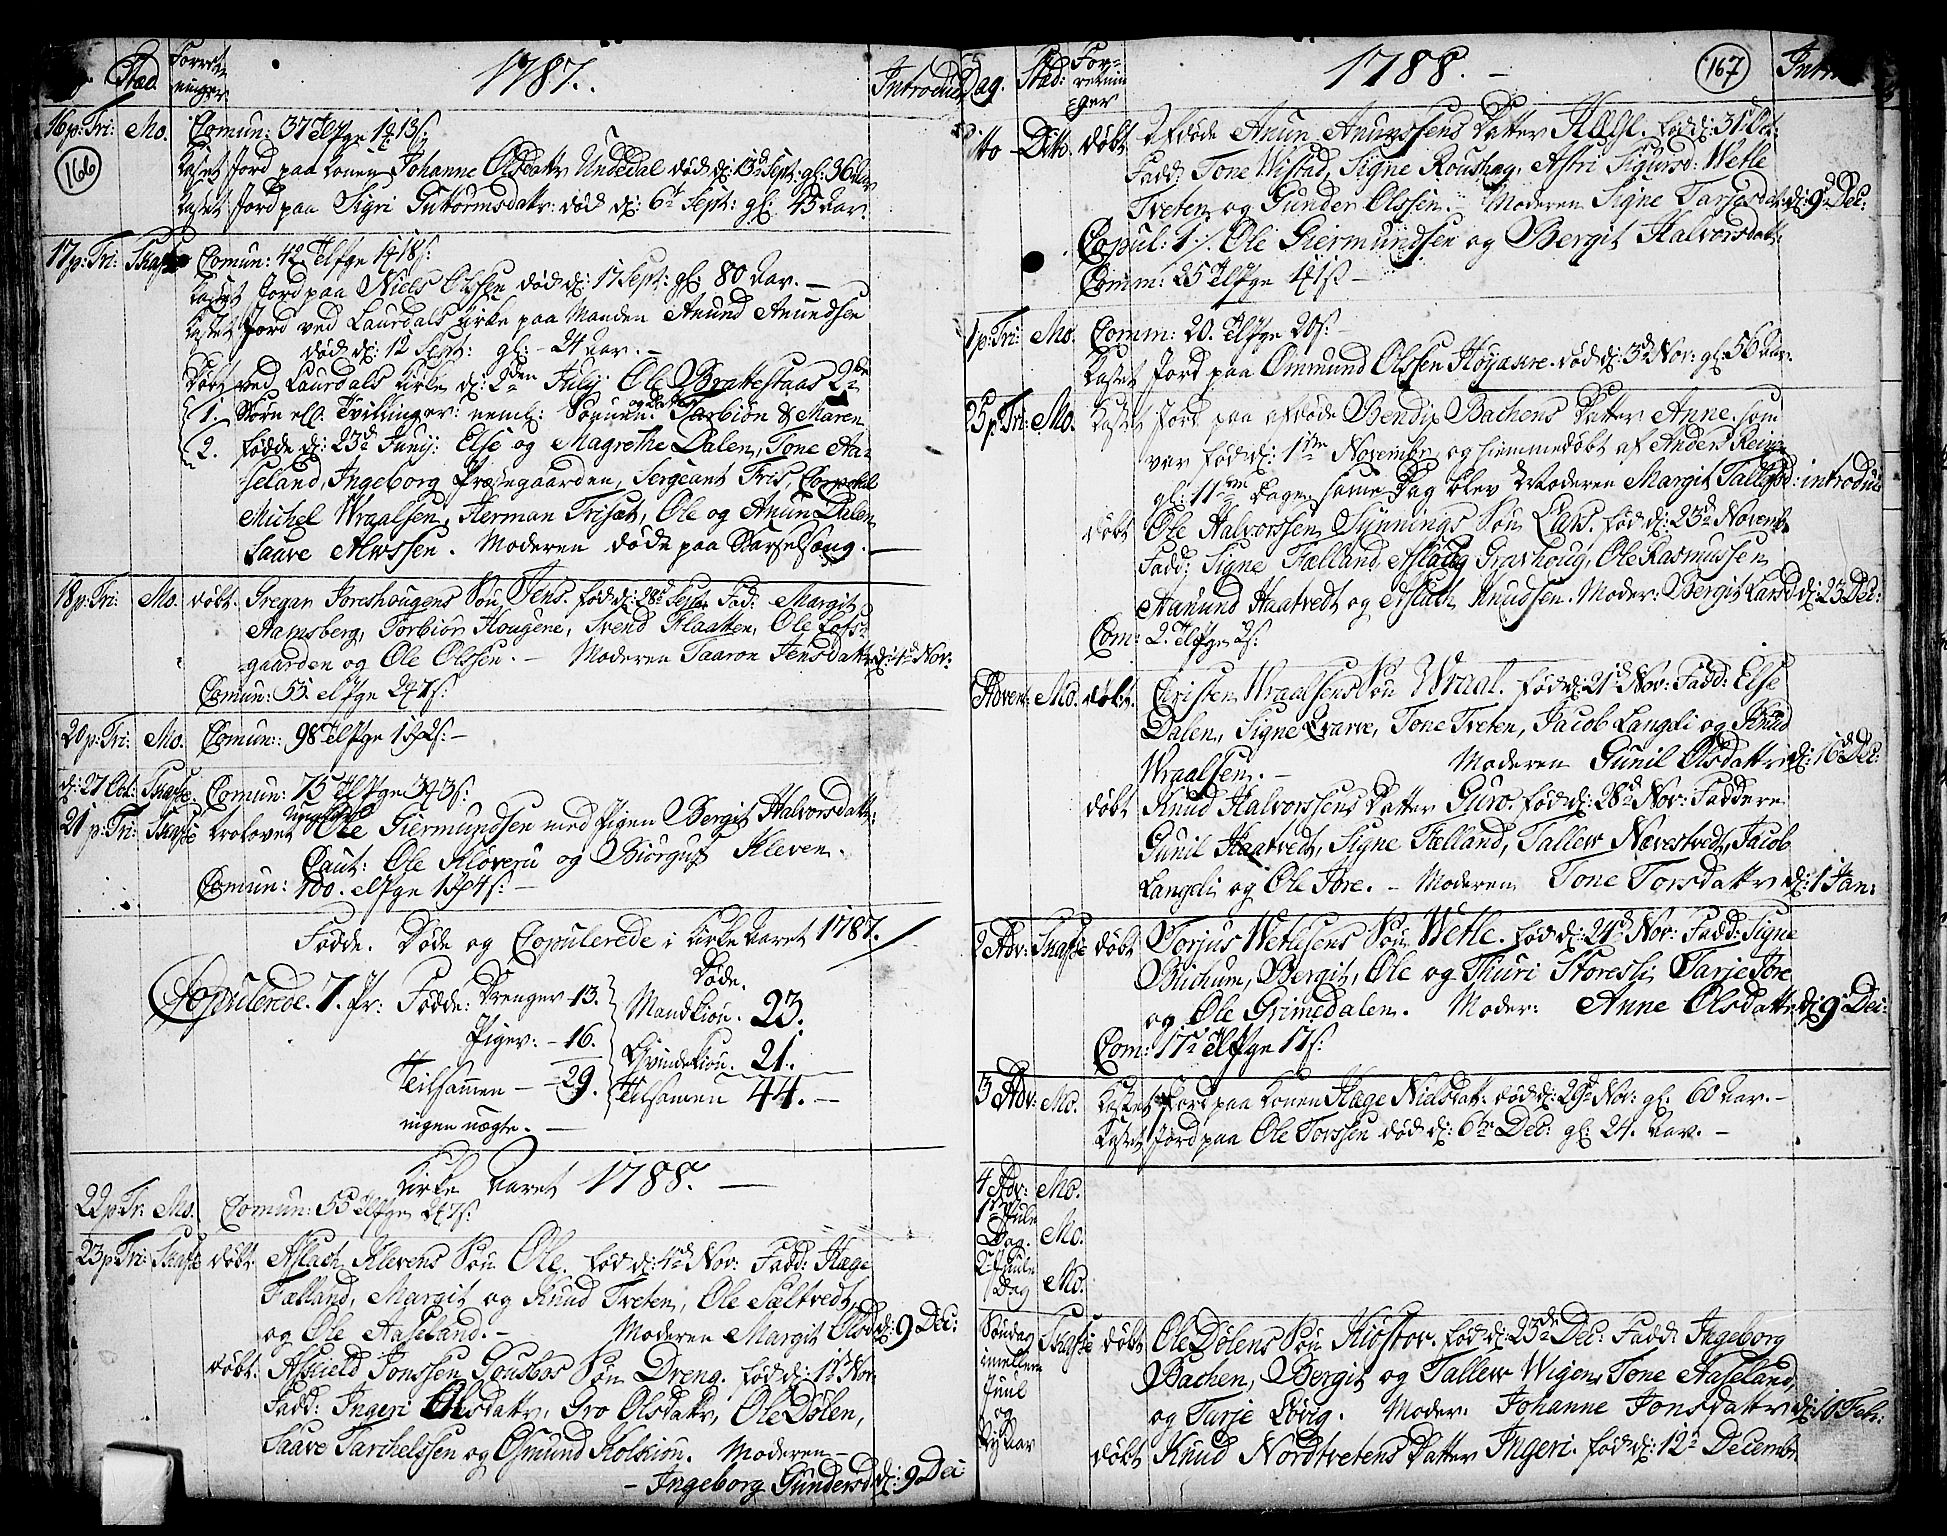 Dag Stæd. Forret-
ninger 1787. Introduc
166
16 p: Tri: Mo. Comun: 37
Kastet Jord paa Konen Johanne Olsdattr Undedal død d: 13d Sept: gl: 36 Aar
Kastet Jord paa Sigri Guttormsdattr: død d: 6t Sept: gl: 45 Aar.
17 p: Tri: Skafsæ Comun: 42
Kastet Jord paa Niels Olssen død d: 17 Sept: gl: 80 Aar. —
Kastet Jord ved Laurdals Kirke paa Manden Anund Anundsen
død d: 12 Sept: gl: - 24 Aar. —
Døbt ved Laurdals Kirke d: 2den Julij Ole Brattestaas 2de
1. Børn ell. Tvillinger: neml: Sønnen Torbiøn & Maren
2. fødde d: 23d Junij: Else og Magrethe Dalen, Tone Aa-
seland, Ingeborg Præstegaarden, Sergeant Friis, Corporal
Michel Wraalsen, Herman Trisæt, Ole og Anun Dalen
Saave Alwssen. Moderen døde paa Barselseng.
18 p: Tri: Mo. døbt. Gregar Joreshougens Søn Jens. fød d: 28d Septr Fad: Margit
Aamsberg, Torbiør Hougene, Svend Flaatten, Ole Lofs-
gaarden og Ole Olssen. — Moderen Taaron Jensdattr d: 4d Nov:
Comun: 55.
20 p: Tri: Mo. Comun: 98
d: 27 Oct: Skafsæ. Comun: 75
21 p: Tri: Skafsæ trolovet Ungkarl Ole Giermundsen med Pigen Bergit Halvorsdattr:
Caut: Ole Kløveru og Biørguf Kleven.
Comun: 100.
Fødde. Døde og Copulerede i Kirke Aaret 1787.
Copulerede. 7. Pr: Fødde: Drenger - 13. Døde.
Mandkiøn. 23.
Piger: - 16. Qvindekiøn. 21.
Tilsamen - 29. Tilsamen 44. —
ingen uægte. —
Kirke Aaret 1788. —
22 p: Tr: Mo. Comun: 55
23 p: Tri: Skafsæ døbt Aslach Klevens Søn Ole. fød d: 4d Nov: Fadd: Hæge
Fælland, Margit og Knud Tveten, Ole Sæltvedt,
og Ole Aaseland. — Moderen Margit Olsd: d: 9 Dec:
døbt. Asuield Jonssen Gousbos Søn Dreng. fød d: 1st Nov
Fadd: Ingeri Olsdattr, Gro Olsdattr, Ole Dølen,
Saave Tarchelssen og Osmund Kolskiou. Moderen —
— Ingeborg Gundersd: d: 9 Dec:
Dag. Stæd: For-
retnin
ger 1788. — 167 Intr
Dito - Dito. døbt Afdøde Anun Anunssens Datter Hæge. fød d: 31 Oct:
Fadd: Tone Wistad, Signe Roushag, Astri Sigursd: Wetle
Tveten og Gunder Olssen. Moderen Signe Tarjesdat: d: 9d Dec:
Copul: 1/. Ole Giermundsen og Bergit Halvorsdattr
Comm: 25
Mo. Comm: 20.
Kastet Jord paa Ommund Olssen Høyaase. død d: 3d Nov: gl: 56 Aar.
25 p: Tri: Mo. Kastet Jord paa afdøde Bendix Bachens Datter Anne, som
var fød d: 1ste Novembr og hiemmedøbt af Anders
gl: 11 Dage. samme Dag blev Moderen Margit Tallefsd: introduc
døbt Ole Halvorssen Synnings Søn Lars. fød d: 23d Novemb
Fadd: Signe Fælland, Aslaug Gravhoug, Ole Rasmussen
Aamund Haatvedt og Aslach Knudsen. Moder: Bergit Larsd d: 23 Dec:
Com: 2.
Adven: Mo. døbt Christen Wraalsens Søn Wraal. fød d: 21d Nov: Fadd: Else
Dalen, Signe Qvarve, Tone Tveten, Jacob Langeli og Knud
Wraalsen. — Moderen Gunil Olsdattr d: 16d Dec:
døbt Knud Halvorssens Datter Guro. fød d: 28d Nov: Faddere
Gunil Haatvedt, Signe Fælland, Tallew Nævestvedt, Jacob
Langeli og Ole Jore. — Moderen Tone Torsdattr d: 1 Jan:
2 Adv: Skafsæ døbt Torjus Wetlesens Søn Wetle. fød d: 24d Nov: Fadd: Signe
Bichum, Bergit, Ole og Thuri Storesli, Tarje Jore
og Ole Grimedalen. Moder: Anne Olsdattr d: 9 Dec:
Com: 17
3 Adv: Mo. Kastet Jord paa Konen Hæge Nielsdatt: død d: 29d Nov: gl: 60 Aar. —
Kastet Jord paa Ole Torssen død d: 6te Dec: gl: 24. Aar. —
4 Adv: Mo.
1ste Juule
Dag. Mo.
2 Juule
Dag Mo.
Søndag
imellem
Juul
og
Nytaar Skafsæ døbt Ole Dølens Søn Kiøstov. fød d: 23de Dec: Fadd: Ingeborg
Bachen, Bergit og Tallew Wigen, Tone Aaseland,
og Tarje Løvig. Moder: Johanne Jonsdattr d: 10 Feb:
døbt Knud Nordtvetens Datter Ingeri. fød d: 12te Decembr